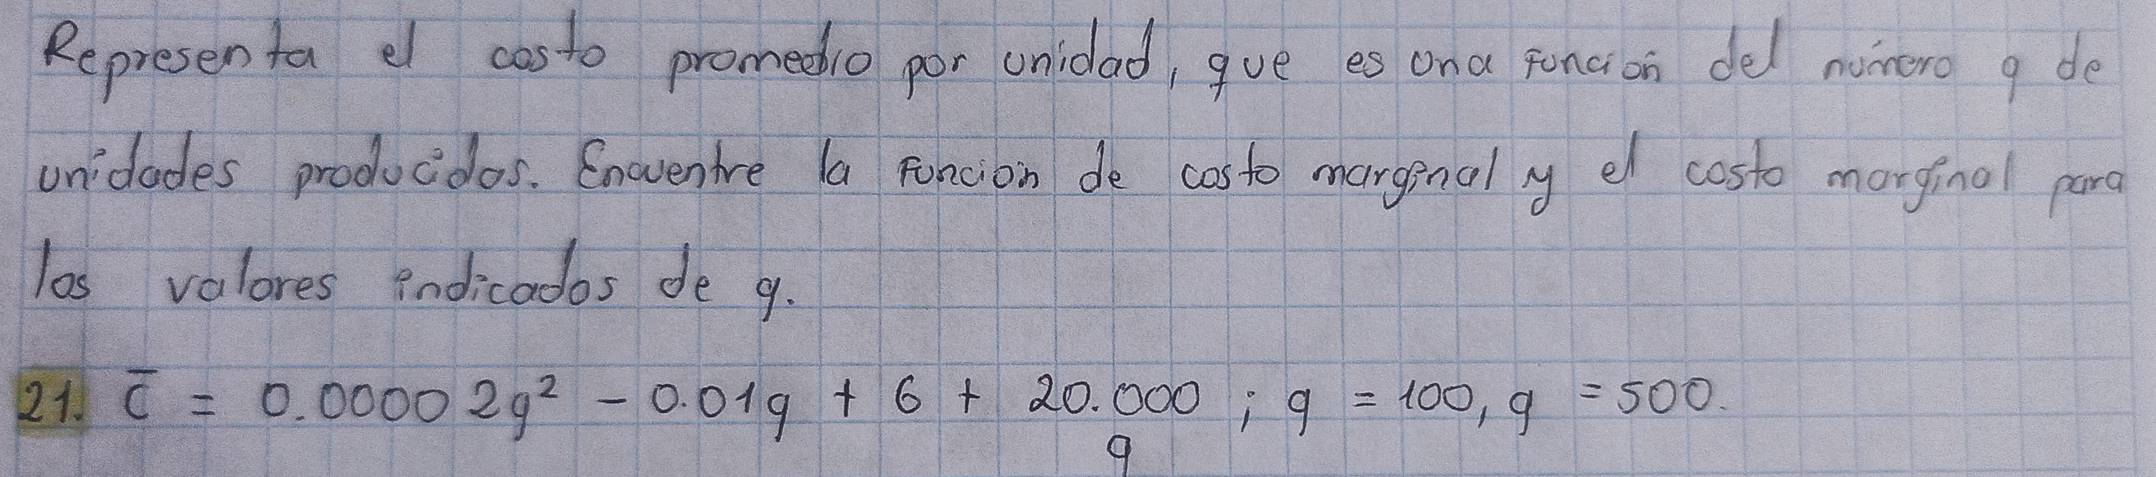 Representa el costo promedio por unidad, que es una función del número q de
unidades producidas. Encuentre la función de costo marginal y el costo marginal para
los valores indicados de q.
21. c̅ = 0.00002q² - 0.01q + 6 + 20.000 ; q = 100, q = 500.
q